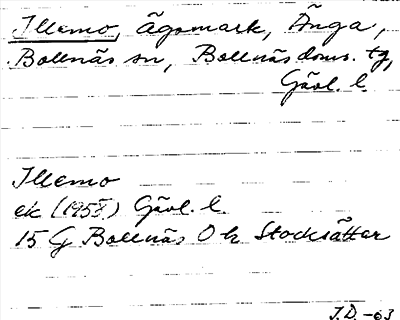 Illemo, Ägomark, Änga,
Bollnäs sn, Bollnäs doms. tg,
Gävl. l.
Illemo
ek (1958) Gävl. l.
15 G Bollnäs O k Stocksätter
J.D. -63